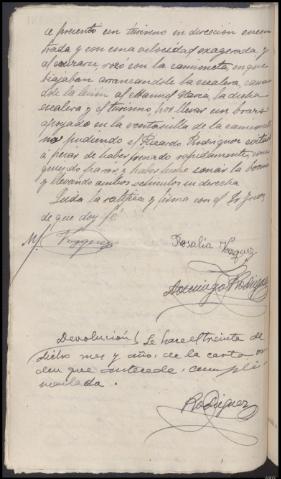 se presentó un turismo en dirección encon
trada y con una velocidad exagerada y
al cruzarse rozó con la camioneta en que
viajaban arrancandole la escalera, causan
dole la lesión al Manuel la dicha
escalera y el turismo por llevar un brazo
apoyado en la ventanilla de la camioneta
no pudiendo el Ricardo Rodriguez evitarlo
a pesar de haber frenado rapidamente,
y haber hecho sonar la bocina
y llevando ambos vehiculos su derecha
Leida la ratifica y firma con el Sr Juez
de que doy fé
Rosalia Vazquez
Domingo Rodriguez
Devolución / Se hace el treinta de
dicho mes y año, de la carta or
den que antecede, cumpli
mentada.
Rodriguez